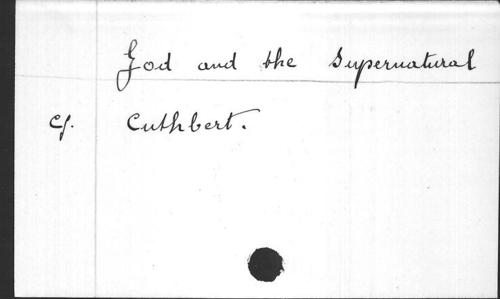 God and the Supernatural
Cf. Cuthbert.